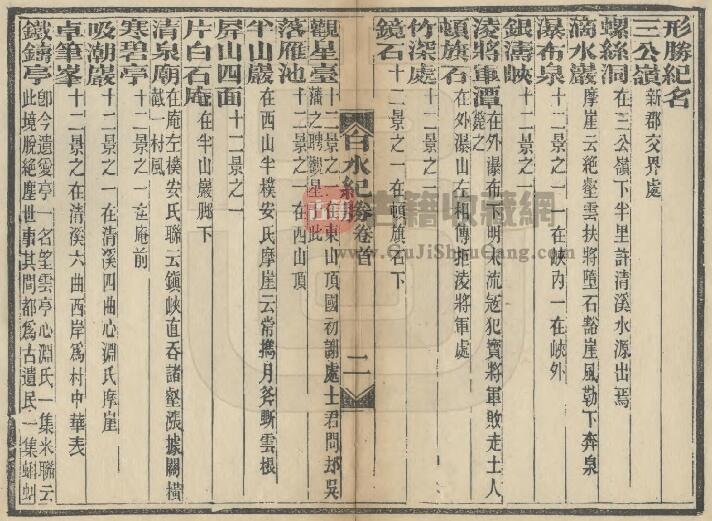 形勝紀名
三公嶺 新郡交界處
螺絲洞 在三公嶺下半里許清溪水源出焉
滴水巖 摩崖云絶壑雲扶將墮石豁崖風勒下奔泉
瀑布泉 十二景之一在峽內一在峽外
銀濤峽 十二景之一
淩將軍潭 在外瀑布下明末流寇犯竇將軍敗走土人斃之
頓旗石 在外瀑山左相傳拒淩將軍處
竹深處 十二景之一
鏡石 十二景之一在頓旗石下
白水紀勝卷首 二
觀星臺 十二景之一在東山頂國初謝處士君問却吳藩之聘觀星此
落雁池 十二景之一在西山頂
半山巖 在西山半樸安氏摩崖云常攜月斧斲雲根
屏山四面 十二景之一
片白石庵 在半山巖脚下
清泉廟 在庵左樸安氏聯云鎭峽直吞諸壑漲據關橫截一村風
寒碧亭 十二景之一在庵前
吸潮巖 十二景之一在清溪四曲心淵氏摩崖
卓筆峯 十二景之一在清溪六曲西岸爲村中華表
鐵鑄亭 卽今遺愛亭一名望雲亭心淵氏一集米聯云此境脫絶塵世事其間都爲古遺民一集蝌蚪
古籍收藏網
www.GuJiShouCang.com